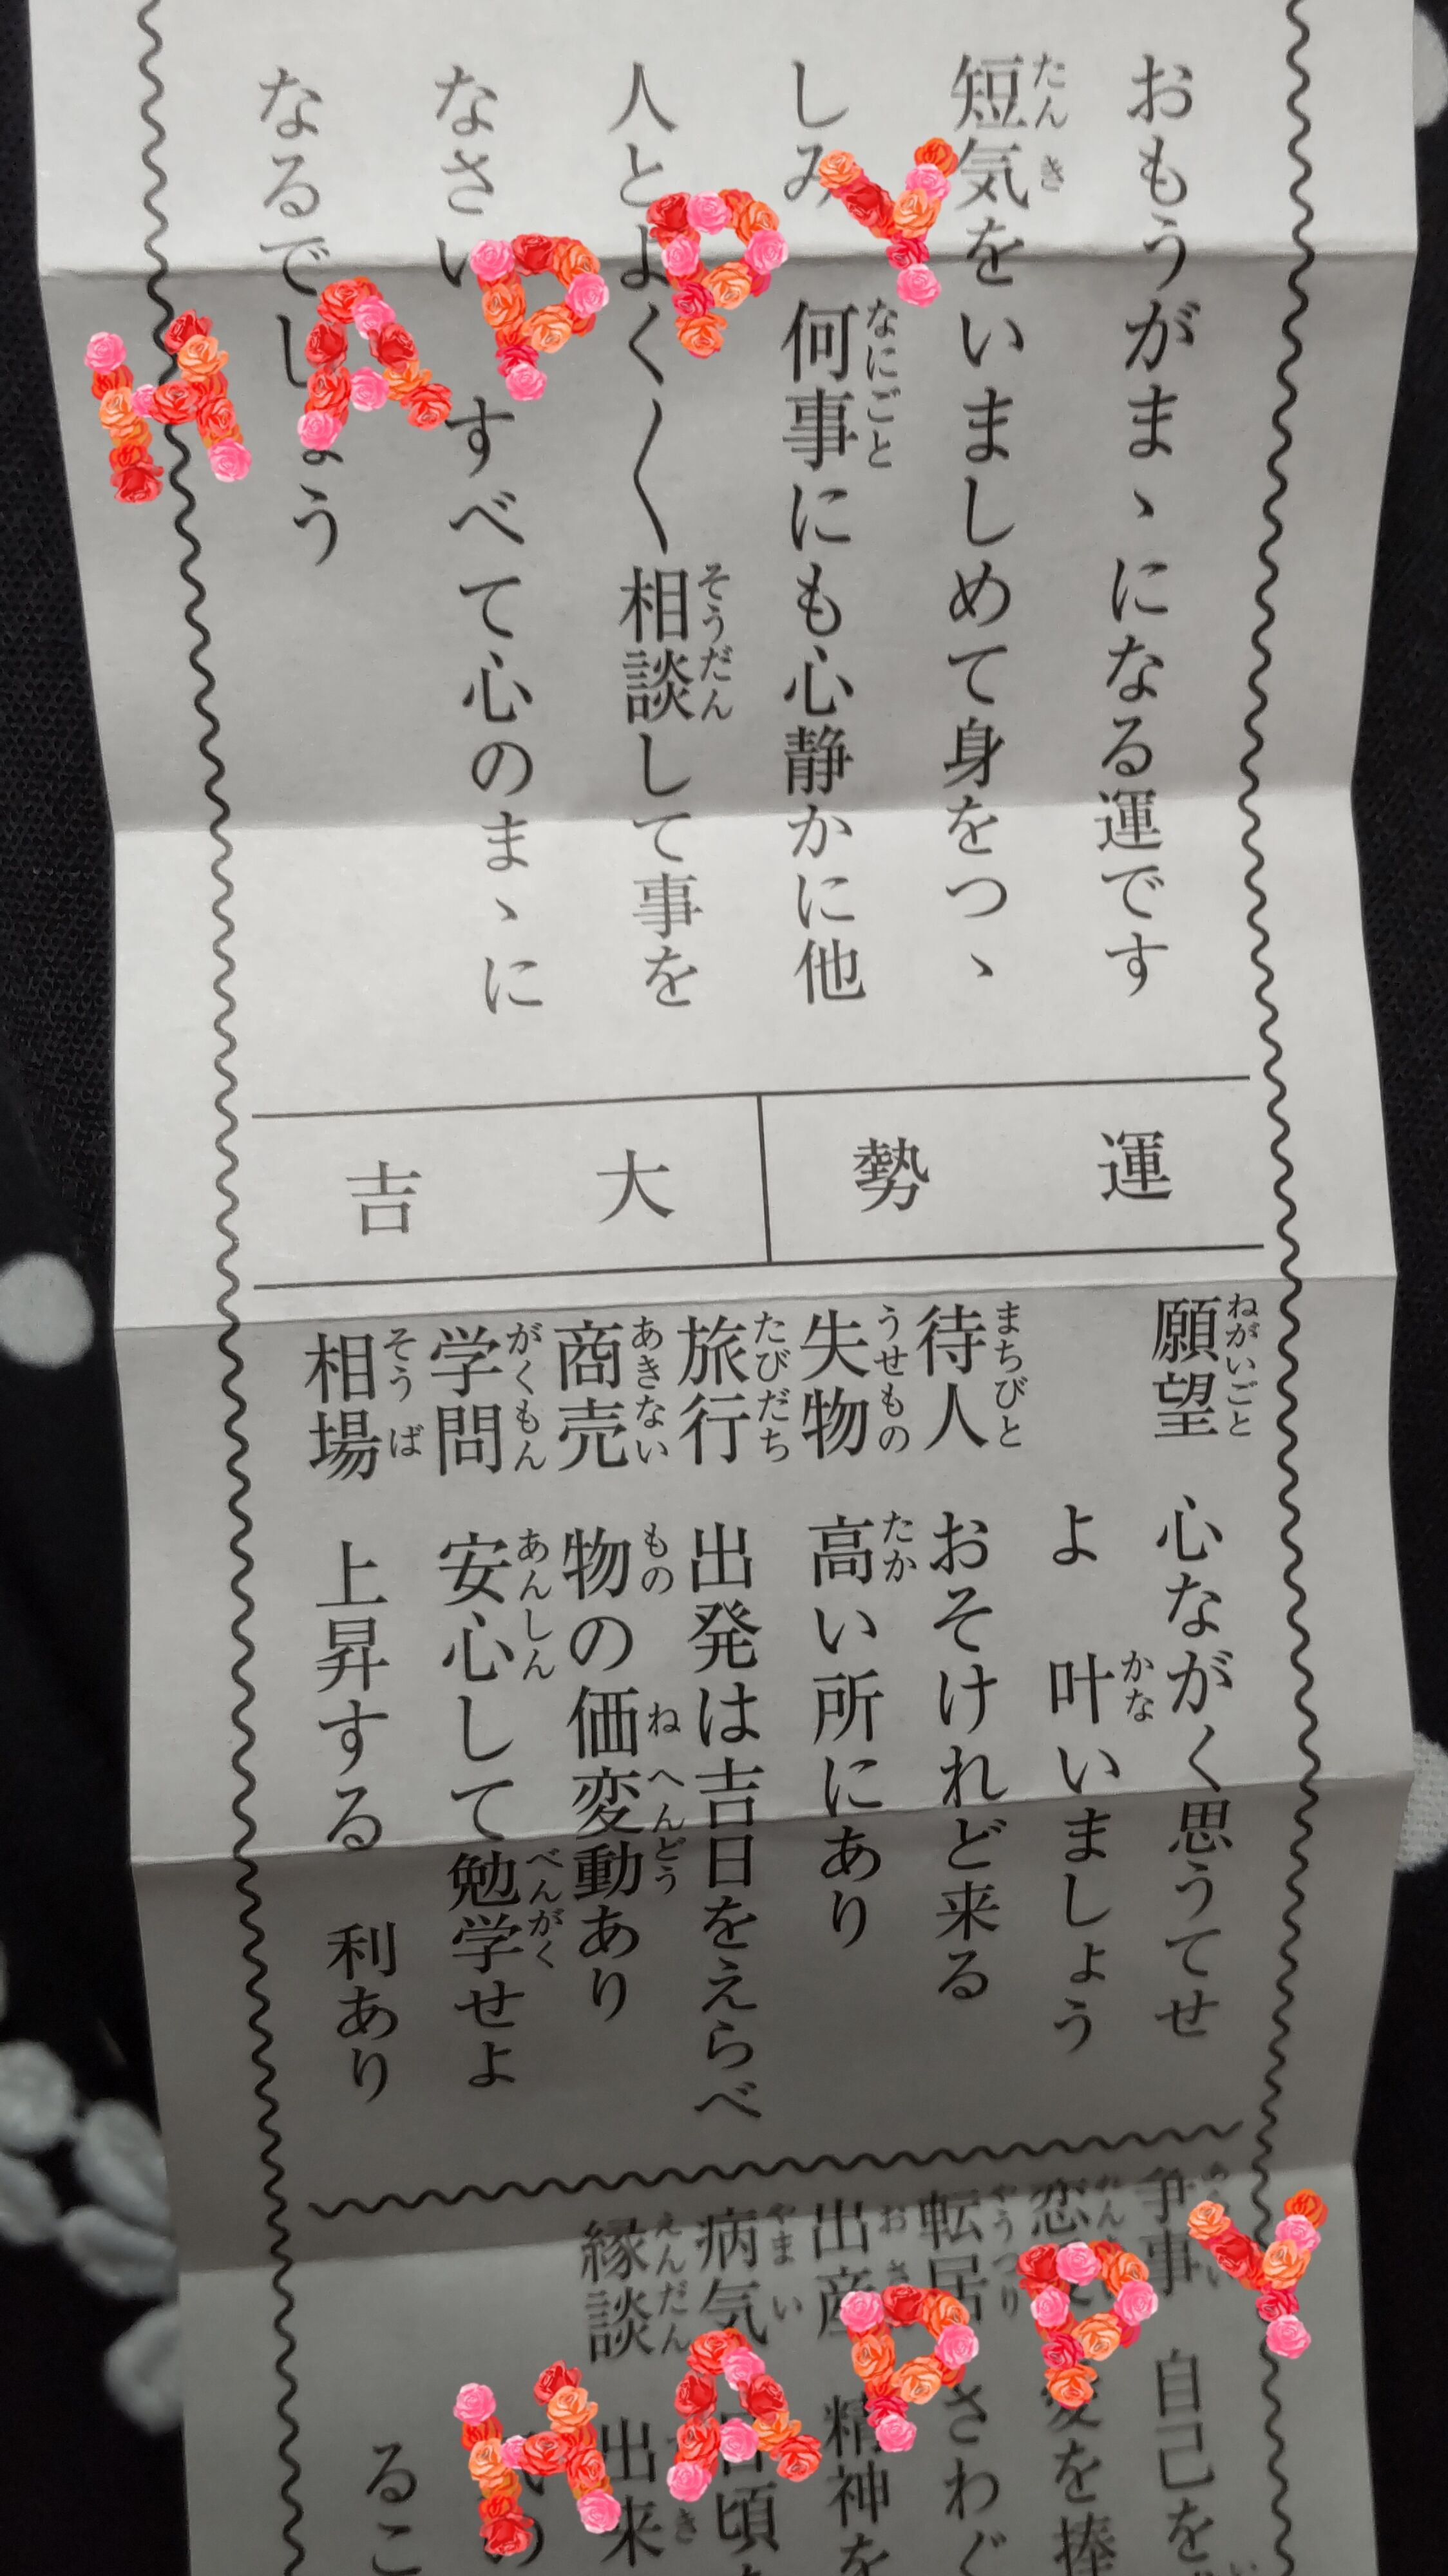 おもうがまゝになる運です
短気をいましめて身をつゝ
しみ 何事にも心静かに他
人とよく〱相談して事を
なさい すべて心のまゝに
なるでしょう
運勢 大吉
願望 心ながく思うてせ
よ 叶いましょう
待人 おそけれど来る
失物 高い所にあり
旅行 出発は吉日をえらべ
商売 物の価変動あり
学問 安心して勉学せよ
相場 上昇する 利あり
争事 自己を
愛を捧
転居 さわぐ
出産 精神を
病気 日頃
縁談 出来
るこ
HAPPY
HAPPY